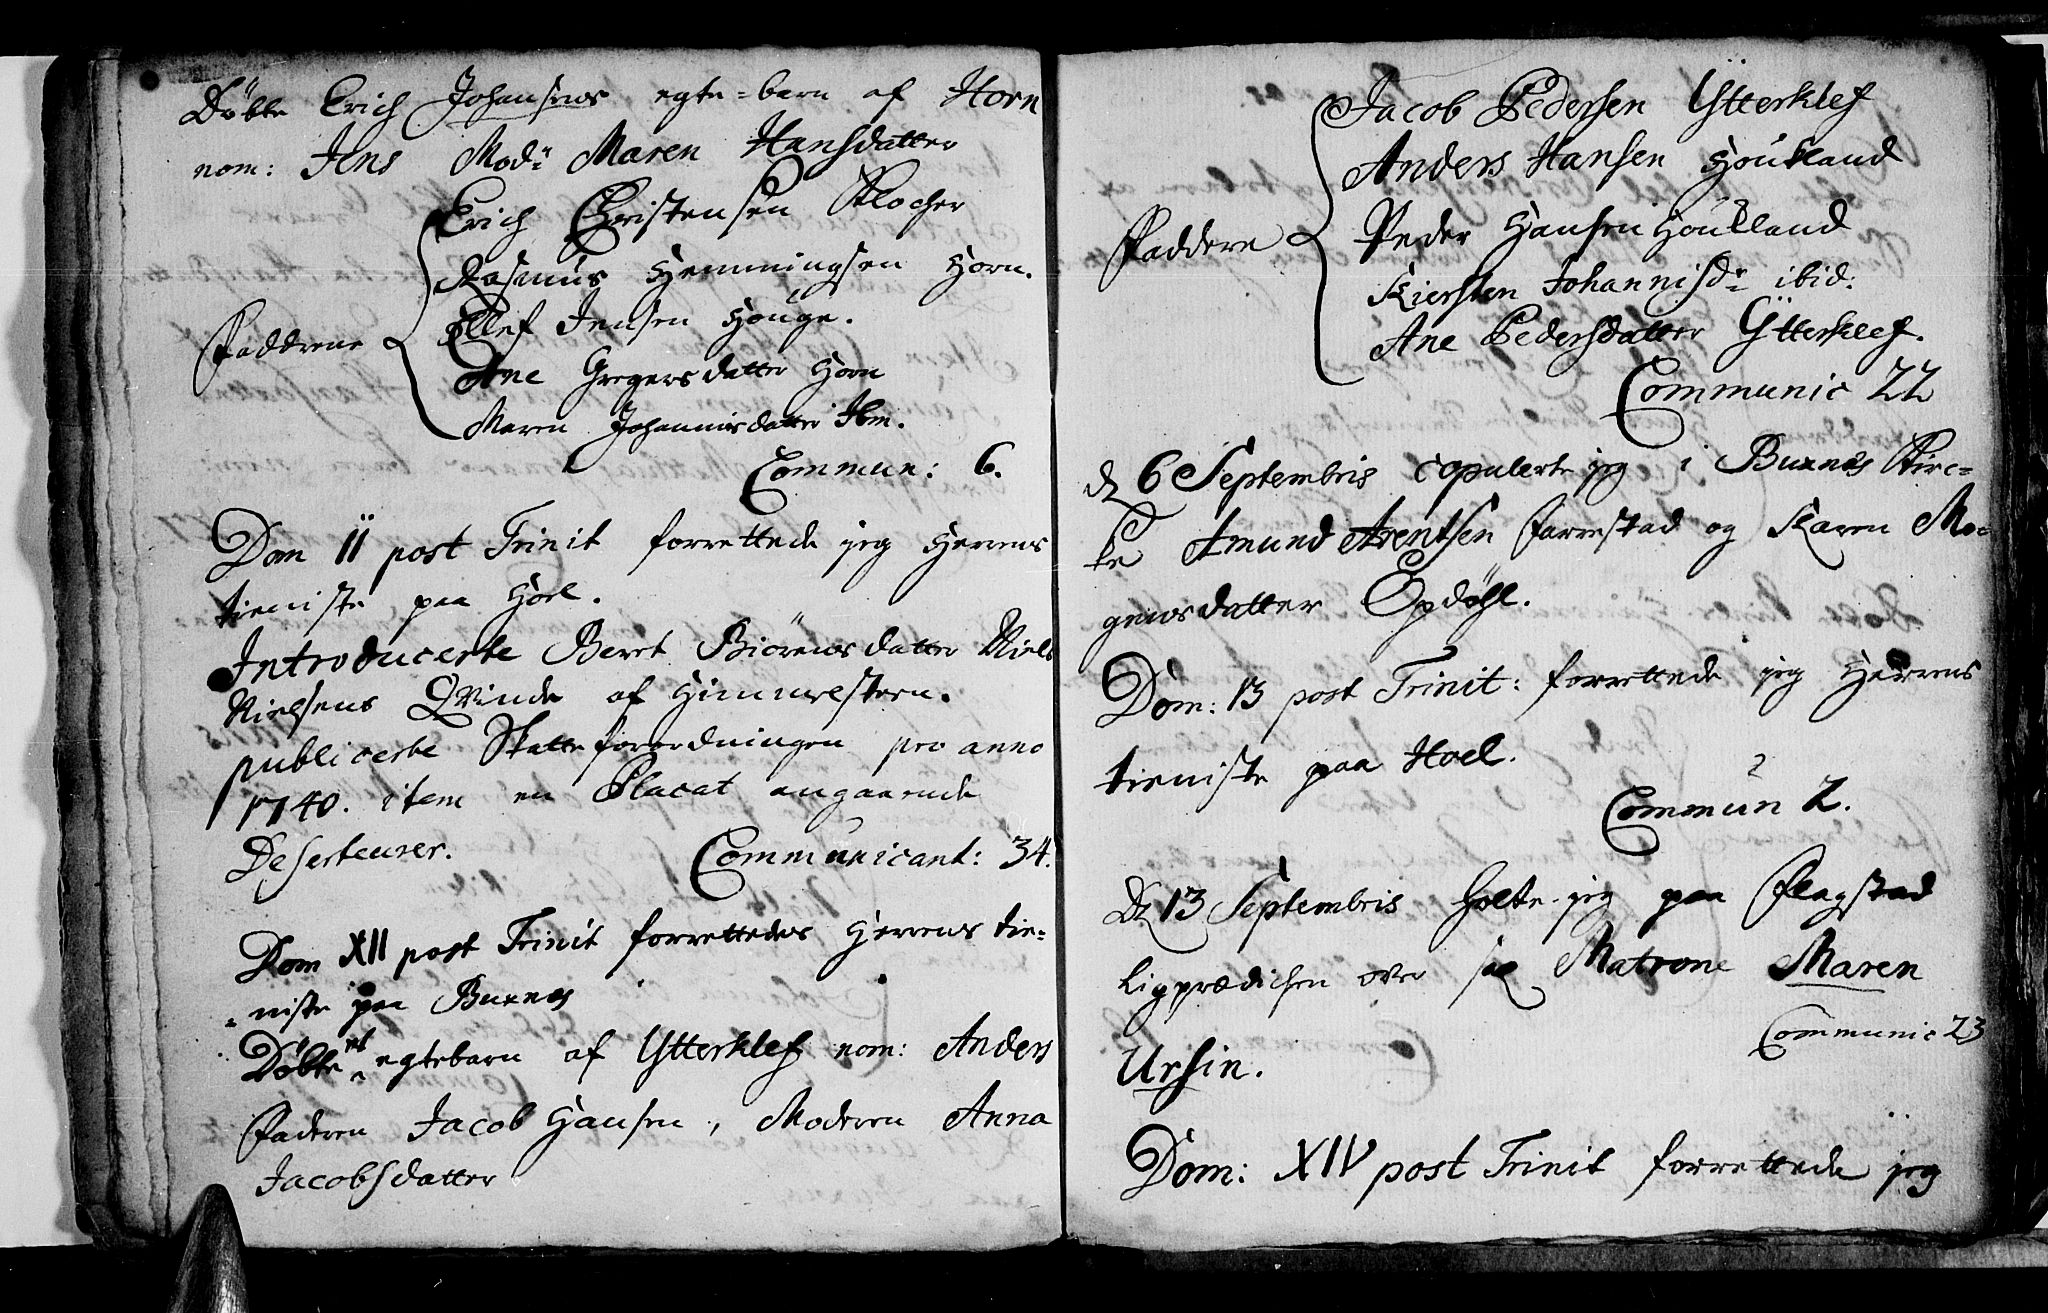 Döbte Erich Johansens egte-barn af Horn
nom: Jens Mod: Maren Hansdatter
Erich Christensen Klocher
Rasmus Hemmingsen Horn.
Ellef Jensen Houge.
Fadderne
Ane Gregersdatter Horn
Maren Johannisdatter Ibm.
Commun: 6.
Dom 11 post Trinit forrettede jeg Herrens
tieniste paa Hoel.
Introducerte Beret Biörensdatter Niels
Nielsens Qvinde af Himmelsteen.
publicerte Skatteforordningen pro anno
1740. item en Placat angaaende
Deserteurer. Communicant: 34.
Dom XII post Trinit forrettedes Herrens tie-
-niste paa Buxnæs
Döbte et egtebarn af Ytterklef nom: Anders
Faderen Jacob Hansen, Moderen Anna
Jacobsdatter
Jacob Pedersen Ytterklef
Anders Hansen Houkland
Faddere Peder Hansen Houkland
Kiersten Johannisd: ibid:
Ane Pedersdatter Ytterklef.
Communic 22
d 6 Septembris copulerte jeg i Buxnæs Kirc-
ke Amund Arentsen Farrestad og Karen Mo-
gensdatter Opdöhl.
Dom: 13 post Trinit: forrettede jeg Herrens
tieniste paa Hoel.
2
Commun 2.
D 13 Septembris holte jeg paa Flagstad
Ligprædichen over sal Matrone Maren
Communic 23
Ursin.
Dom: XIV post Trinit forrettede jeg